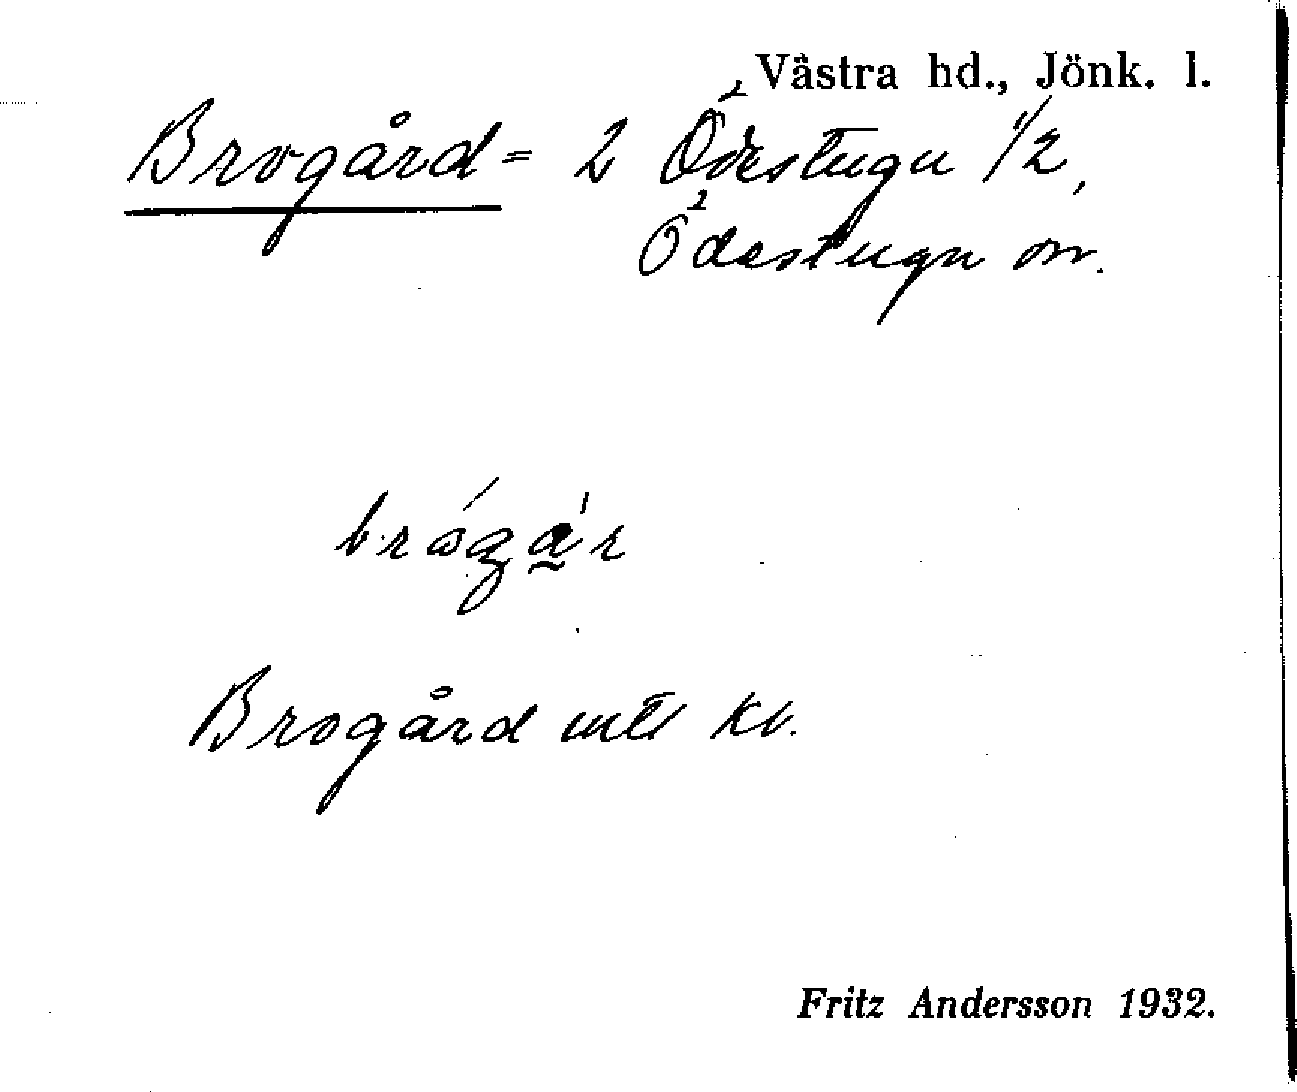 Västra hd., Jönk. l.
Brogård = 2 Ödestugu 1/2,
Ödestugu sn.
brógá'r
Brogård intr kv.
Fritz Andersson 1932.